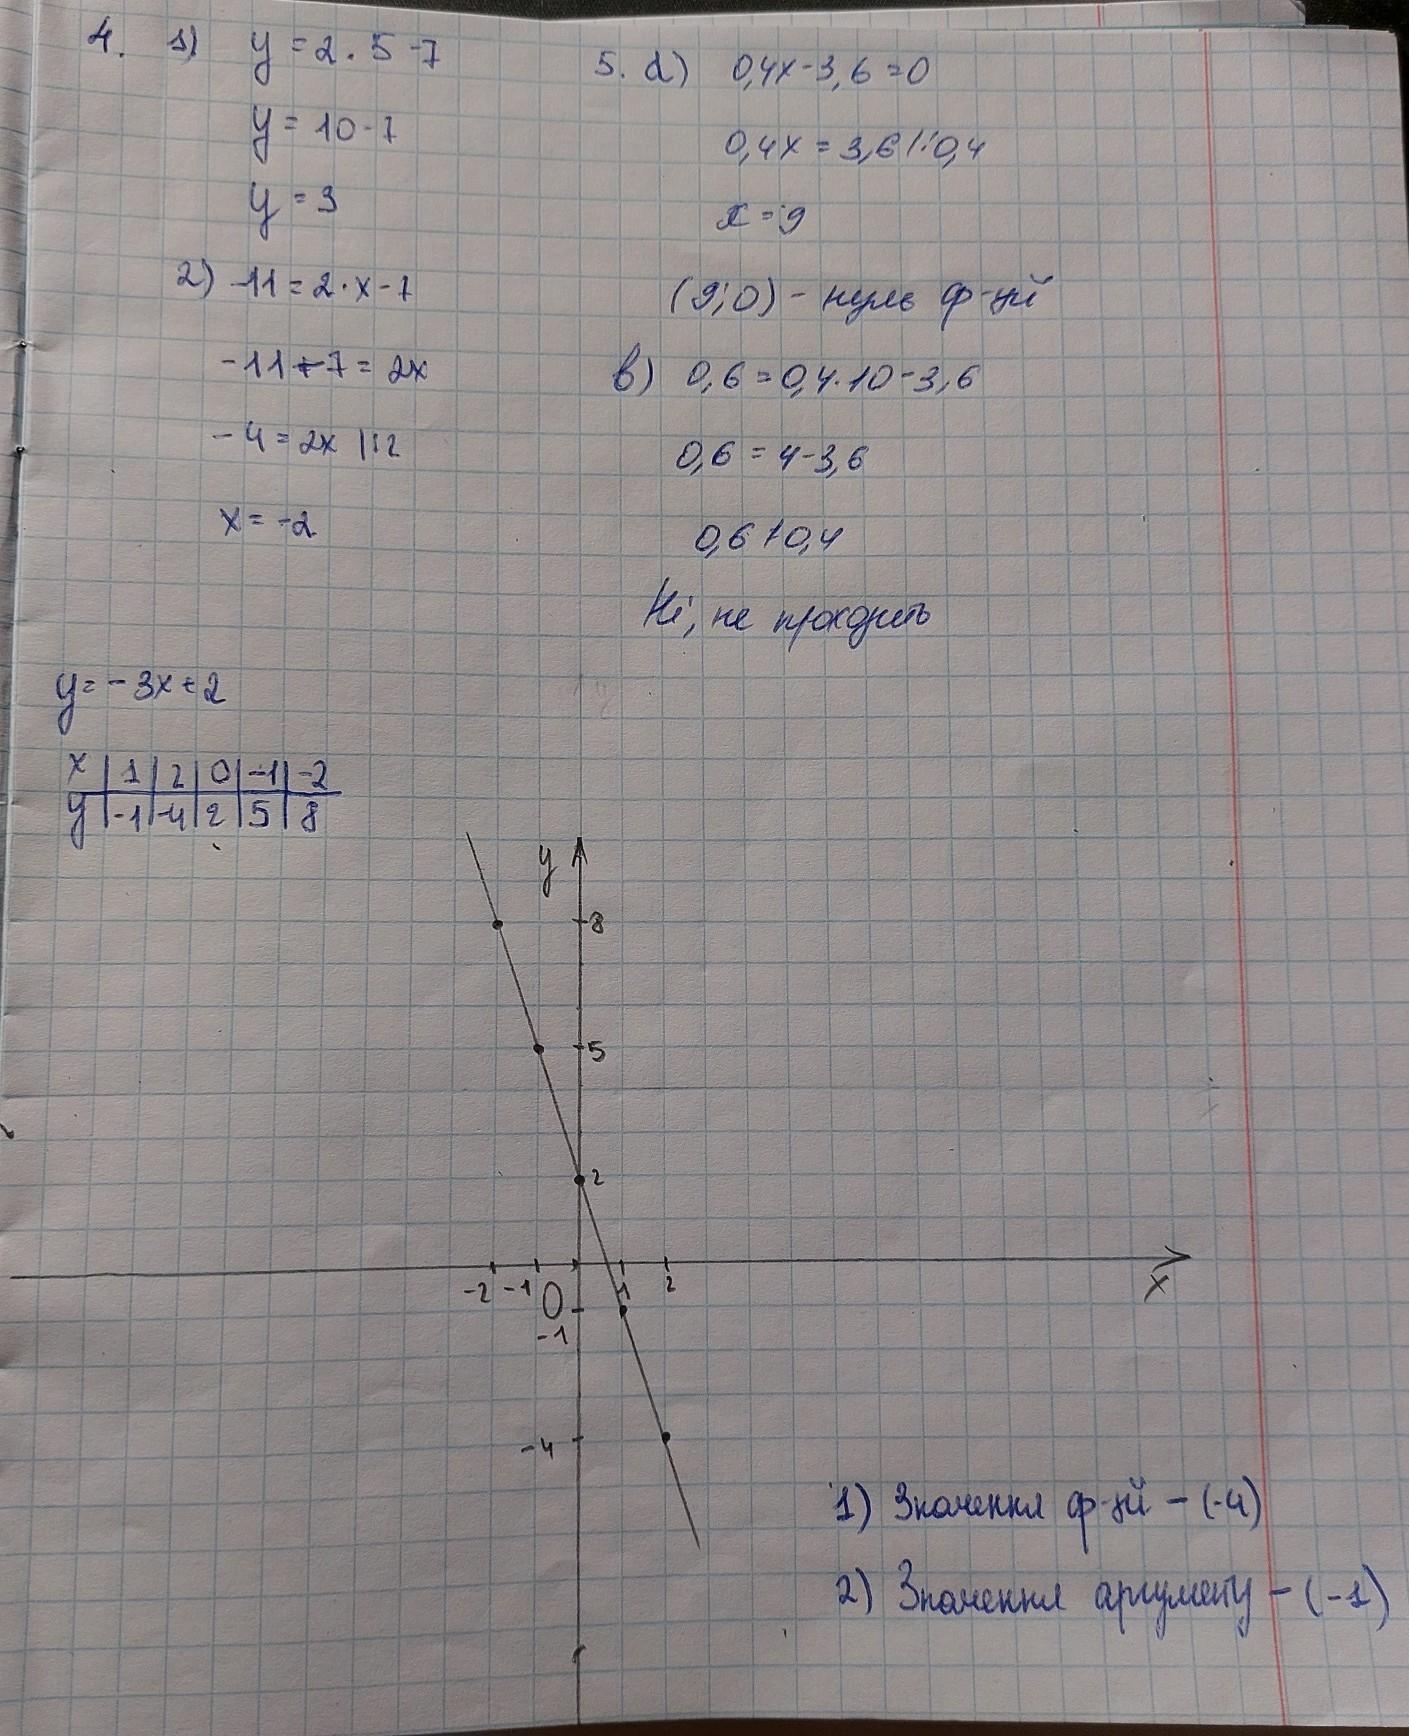 4. 1) y = 2 · 5 - 7
y = 10 - 7
y = 3
2) -11 = 2 · x - 7
-11 + 7 = 2x
-4 = 2x |:2
x = -2
5. а) 0,4x - 3,6 = 0
0,4x = 3,6 |:0,4
x = 9
(9;0) - нуль ф-цй
в) 0,6 = 0,4 · 10 - 3,6
0,6 = 4 - 3,6
0,6 ≠ 0,4
Ні, не проходить
y = -3x + 2
x | 1 | 2 | 0 | -1 | -2
y | -1 | -4 | 2 | 5 | 8
y
8
5
2
-2 -1 0 1 2 x
-1
-4
1) Значення ф-цй - (-4)
2) Значення аргументу - (-1)